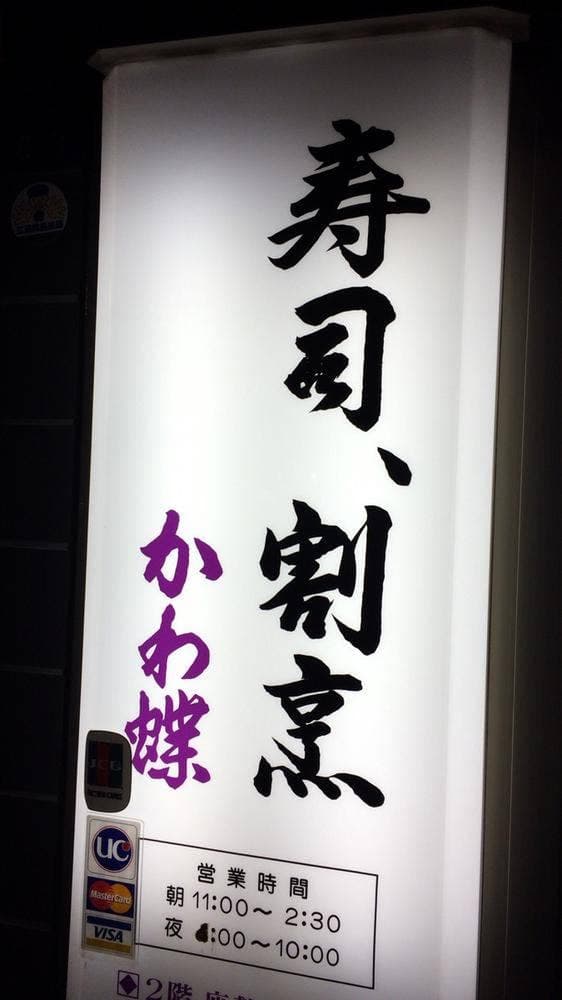 寿司、割烹
かわ蝶
JCB
UC
MasterCard
VISA
営業時間
朝 11:00〜 2:30
夜 :00〜10:00
◆2階 座敷